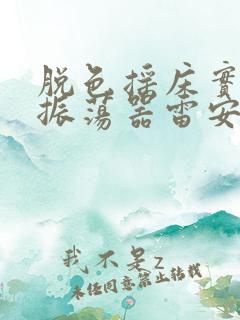 脱色摇床實
振荡器雷安
我不是z
未经同意禁止转载